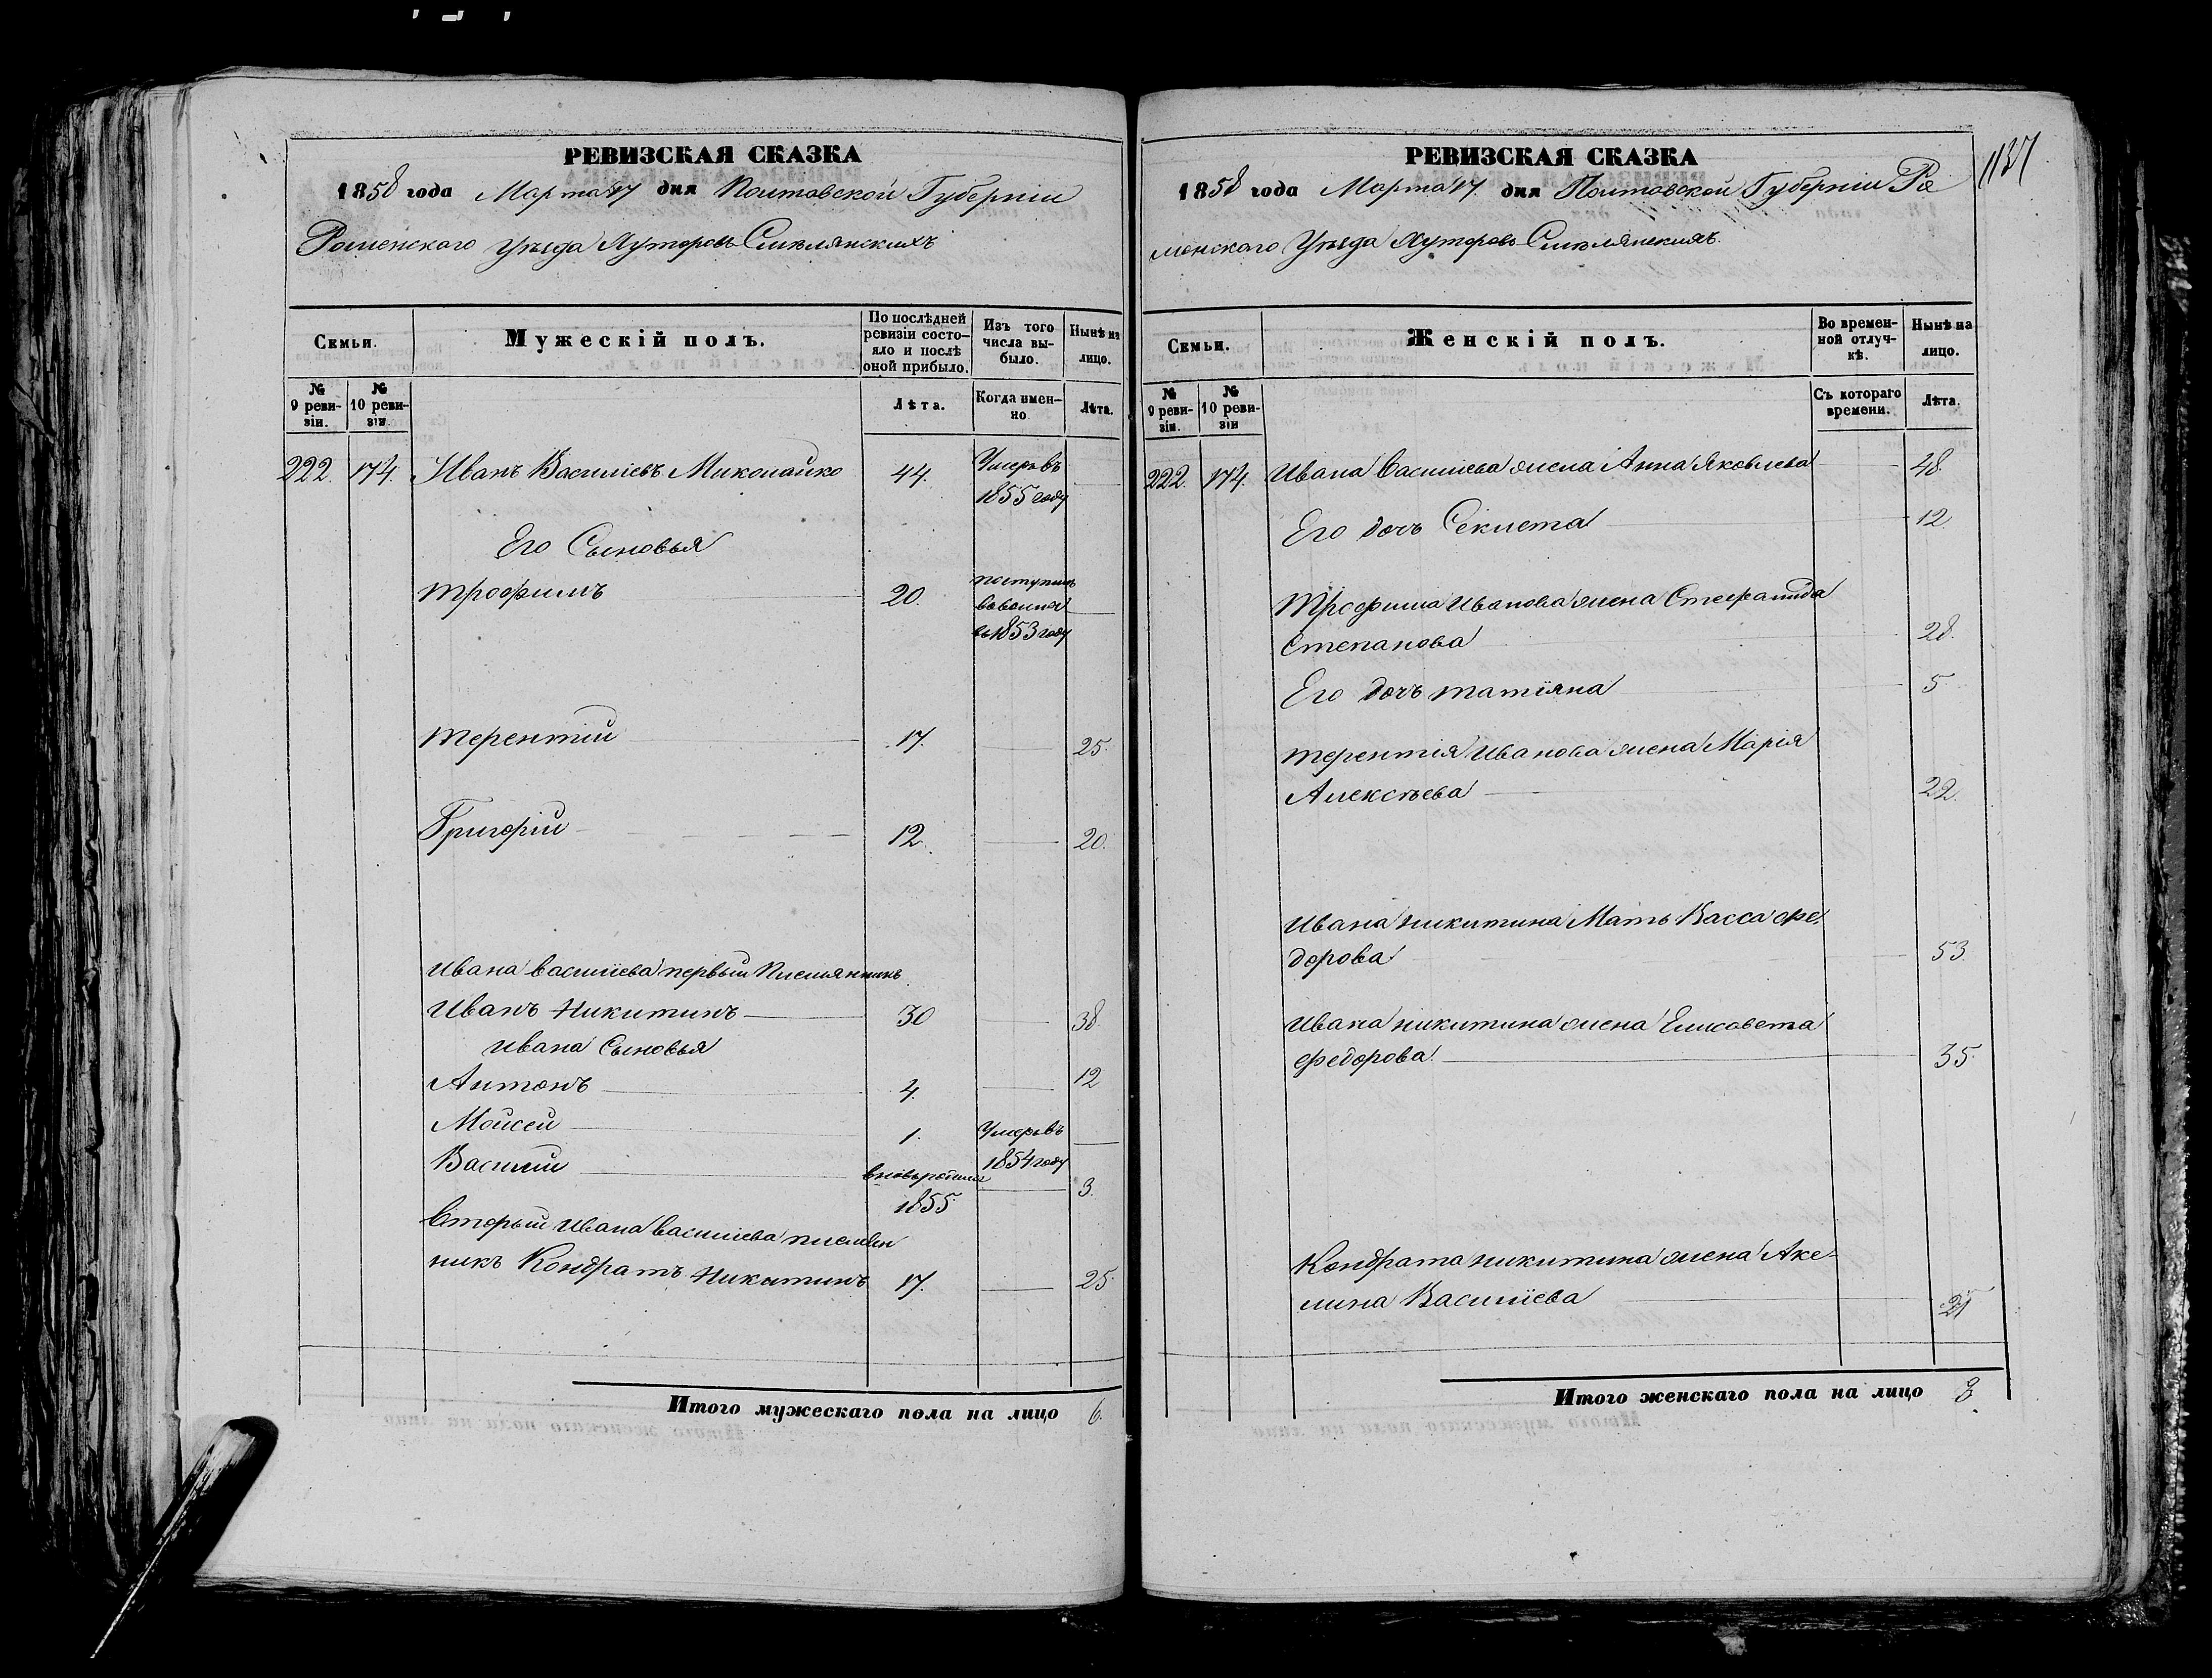 РЕВИЗСКАЯ СКАЗКА
1858 года Марта 17 дня Полтавской Губерніи
Роменского Уѣзда Хуторовъ Смѣлянскихъ
Семьи.
Мужескій полъ.
По послѣдней ревизіи состояло и послѣ оной прибыло.
Изъ того числа выбыло.
Нынѣ на лицо.
№ 9 ревизіи.
№ 10 ревизіи.
Лѣта.
Когда именно
Лѣта.
222. 174. Иванъ Василіевъ Миколайко 44. Умеръ въ
1855 году
Его Сыновья
Трофимъ 20. поступил
в 1853 году
Терентій 17. 25.
Григорій 12. 20.
Ивана Василіева первый Племянникъ
Иванъ Никитинъ 30 38
Ивана Сыновья
Антонъ 4. 12
Мойсей 1. Умеръ въ
1854 году
Василий 3.
1855
Вторый Ивана Василіева племян
никъ Кондратъ Никитинъ 17. 25
Итого мужескаго пола на лицо 6.
РЕВИЗСКАЯ СКАЗКА
1858 года Марта 17. дня Полтавской Губерніи Ро
менского Уѣзда Хуторовъ Смѣлянскихъ.
Семьи.
Женскій полъ.
Во временной отлучкѣ.
Нынѣ на лицо.
№ 9 ревизіи.
№ 10 ревизіи
Съ котораго времени.
Лѣта.
222. 174. Ивана Василіева жена Анна Яковлева 48.
Его дочь Секлета 12
Трофима Иванова жена Стефанида
Степанова 28.
Его дочь Татіяна 5
Терентія Иванова жена Марія
Алексѣева 22.
Ивана Никитина Мать Васса Фе
дорова 53.
Ивана Никитина жена Елисавета
Федорова 35.
Кондрата Никитина жена Аке-
лина Василіева
Итого женскаго пола на лицо 8.